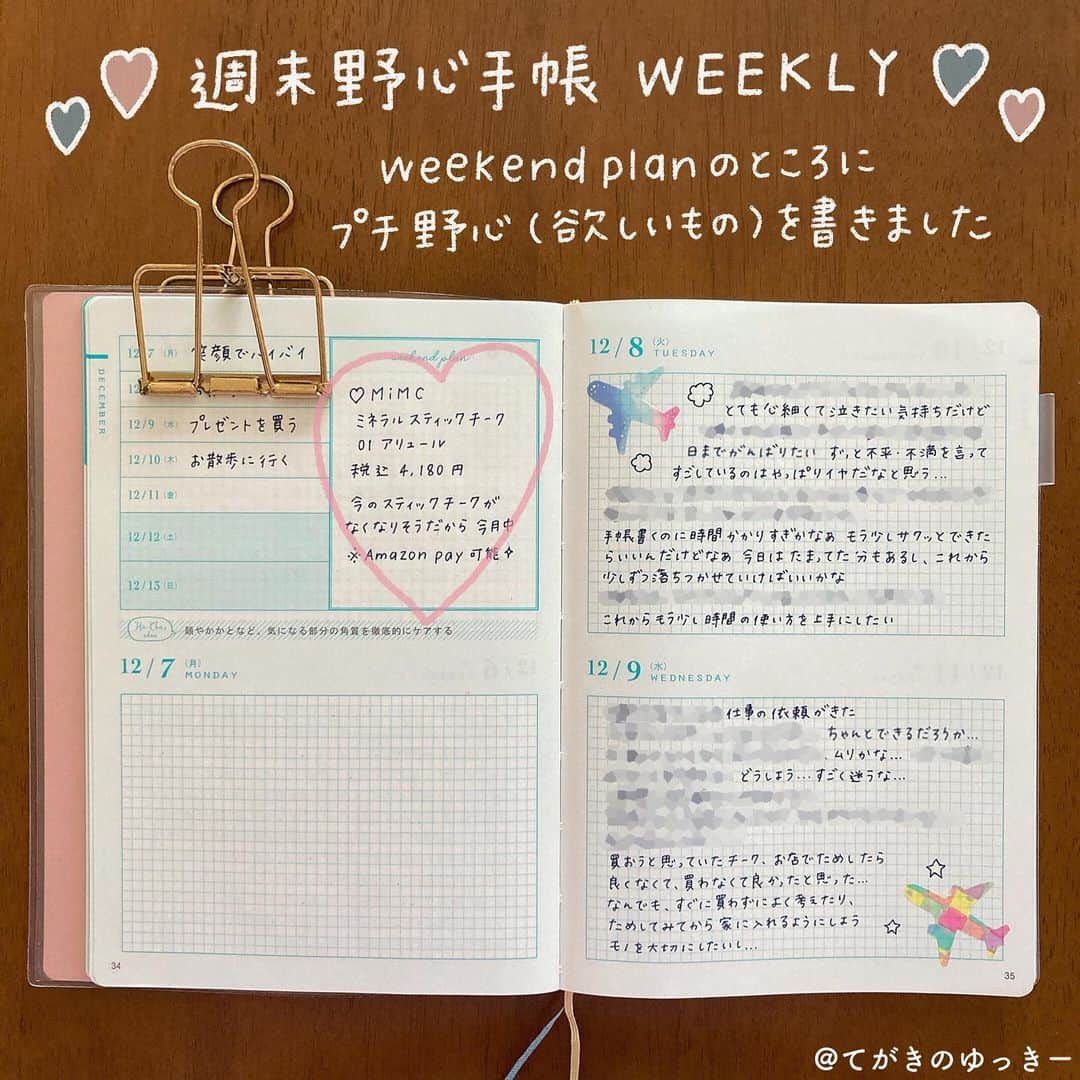 週末野心手帳 WEEKLY
weekend planのところに
プチ野心(欲しいもの)を書きました
DECEMBER
12/7 (月) 笑顔でバイバイ
12/9 (水) プレゼントを買う
12/10 (木) お散歩に行く
12/11 (金)
12/12 (土)
12/13 (日)
weekend plan
♡ MiMC
ミネラルスティックチーク
01 アリュール
税込 4,180円
今のスティックチークが
なくなりそうだから 今月中
※Amazon pay 可能
顔やかかとなど、気になる部分の角質を徹底的にケアする
12/7 (月) MONDAY
34
12/8 (火) TUESDAY
とても心細くて泣きたい気持ちだけど
日までがんばりたい ずっと不平・不満を言って
すごしているのはやっぱりイヤだなと思う…
手帳書くのに時間かかりすぎかなぁ もう少しサクッとできた
らいいんだけどなぁ 今日は たまってた分もあるし、これから
少しずつ落ちつかせていけばいいかな
これからもう少し時間の使い方を上手にしたい
12/9 (水) WEDNESDAY
仕事の依頼がきた
ちゃんとできるだろうか…
ムリかな…
どうしよう…すごく迷うな…
買おうと思っていたチーク、お店でためしたら
良くなくて、買わなくて良かったと思った…
なんでも、すぐに買わずによく考えたり、
ためしてみてから家に入れるようにしよう
モノを大切にしたいし…
35
@てがきのゆっきー